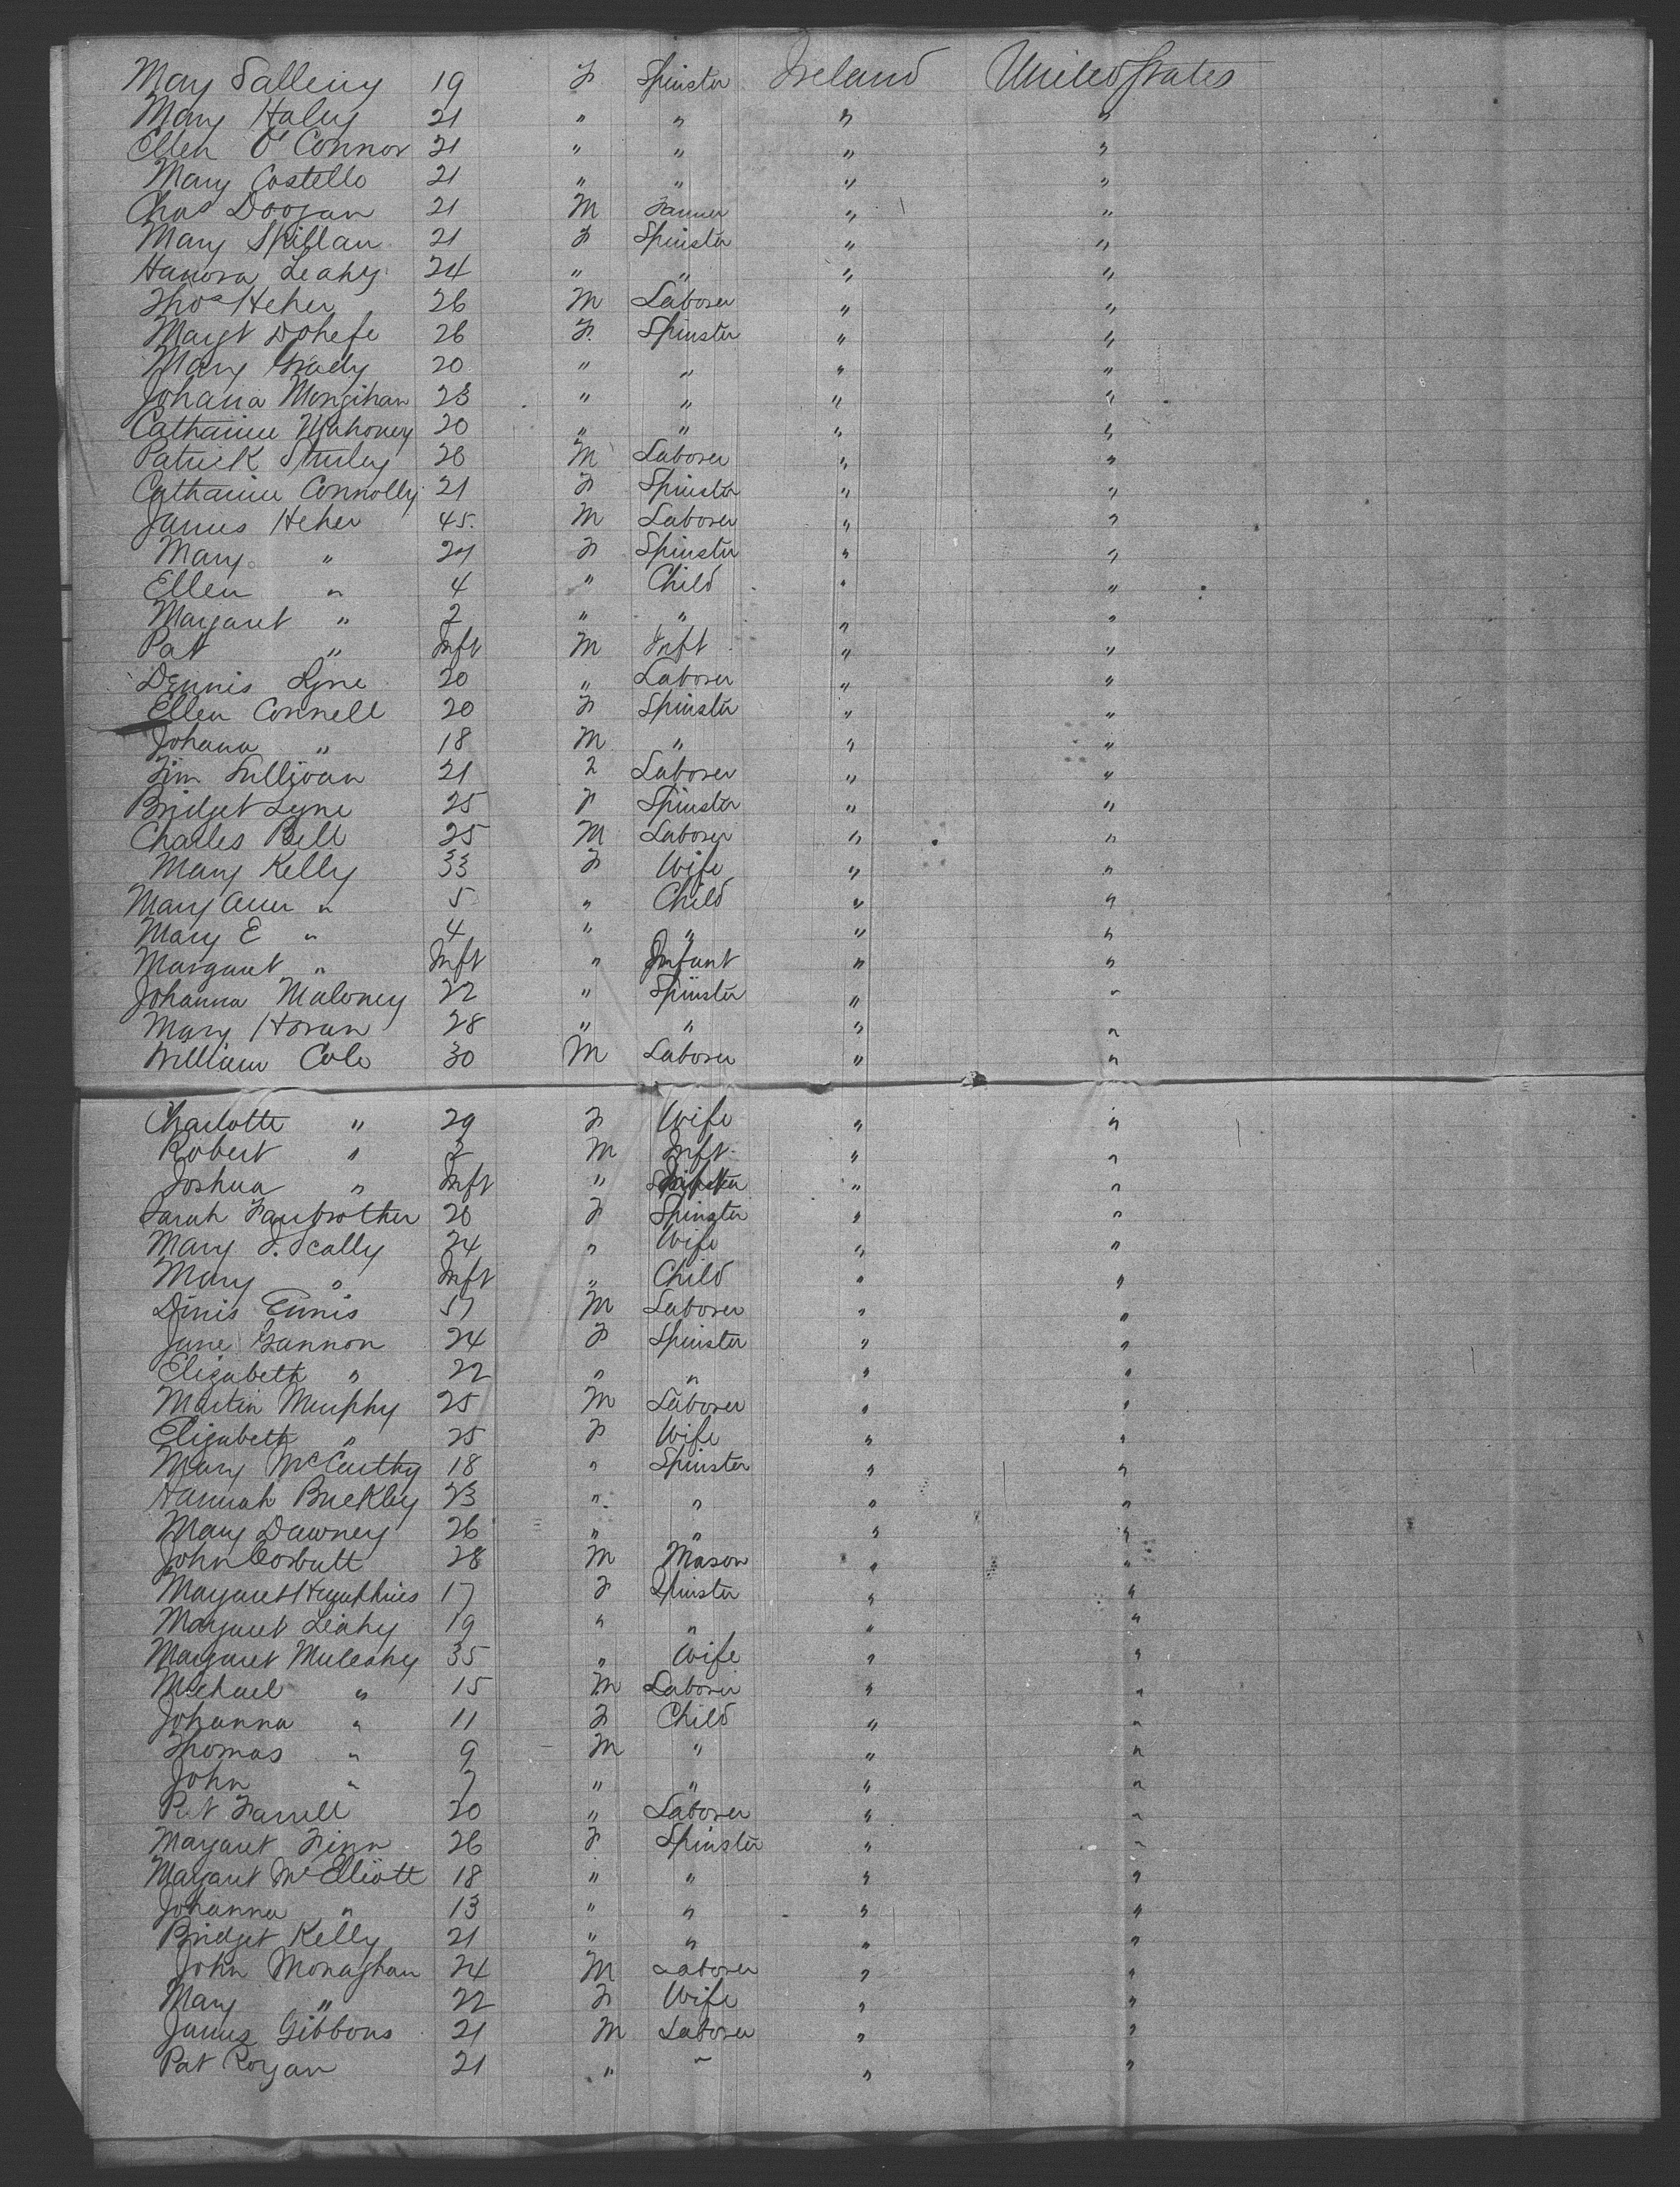 Mary Salleny 19 F Spinster Ireland United States
Mary Haley 21 " " " "
Ellen O'Connor 21 " " " "
Mary Costello 21 " " " "
Chas Doogan 21 M Farmer " "
Mary Skillan 21 F Spinster " "
Hanora Leahy 24 " " " "
Thos Heher 26 M Laborer " "
Margt Dohefe 26 F. Spinster " "
Mary Grady 20 " " " "
Johana Mongihan 23 " " " "
Catharine Mahoney 20 " " " "
Patrick 28 M Laborer " "
Catharine Connolly 21 F Spinster " "
James Heher 45. M Laborer " "
Mary " 24 F Spinster " "
Ellen " 4 " Child " "
Margaret " 2 " " " "
Pat " Inft M Inft " "
Dennis Lyne 20 " Laborer " "
Ellen Connell 20 F Spinster " "
Johana " 18 M " " "
Tim Sullivan 21 F Laborer " "
Bridget Lyne 25 F Spinster " "
Charles Bell 25 M Laborer " "
Mary Kelly 33 F Wife " "
Mary Ann " 5 " Child " "
Mary E " 4 " " " "
Margaret " Inft " Infant " "
Johanna Maloney 22 " Spinster " "
Mary Horan 28 " " " "
William Cole 30 M Laborer " "
Charlotte " 29 F Wife " "
Robert " 2 M Inft. " "
Joshua " Inft " " "
Sarah Fairbrother 20 F Spinster " "
Mary J. Scally 24 " Wife " "
Mary " Inft " Child " "
Dinis Ennis 57 M Laborer " "
Jane Gannon 24 F Spinster " "
Elizabeth " 22 " " " "
Martin Murphy 25 M Laborer " "
Elizabeth " 25 F Wife " "
Mary McCarthy 18 " Spinster " "
Hannah Buckley 23 " " " "
Mary Dawney 26 " " " "
John Corbutt 28 M Mason " "
Margaret Humphries 17 F Spinster " "
Margaret Leahy 19 " " " "
Margaret Mulcahy 35 " Wife " "
Michael " 15 M Laborer " "
Johanna " 11 F Child " "
Thomas " 9 M " " "
John " 7 " " " "
Pat Farrell 20 " Laborer " "
Margaret Finn 26 F Spinster " "
Margaret McElliott 18 " " " "
Johanna " 13 " " " "
Bridget Kelly 21 " " " "
John Monaghan 24 M Laborer " "
Mary " 22 F Wife " "
James Gibbons 21 M Laborer " "
Pat Rogan 21 " " " "